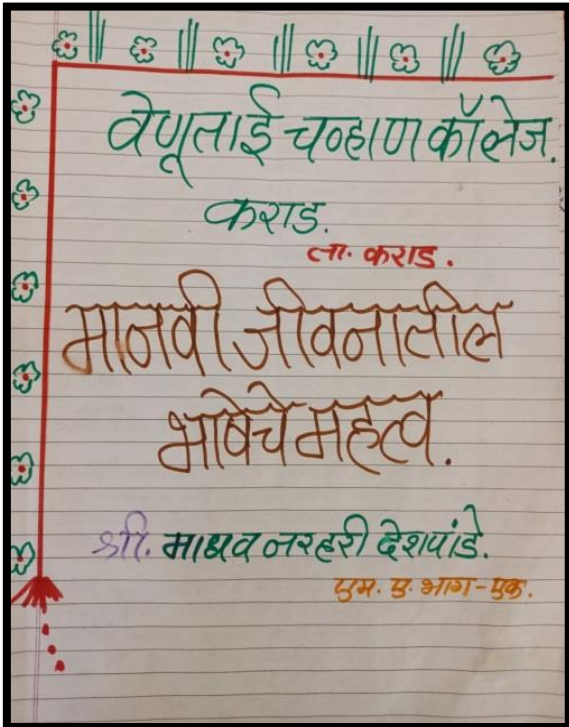 वेणूताई चव्हाण कॉलेज.
कराड.
ता. कराड.
मानवी जीवनातील
भाषेचे महत्व.
श्री. माधव नरहरी देशपांडे.
एम. ए. भाग-एक.